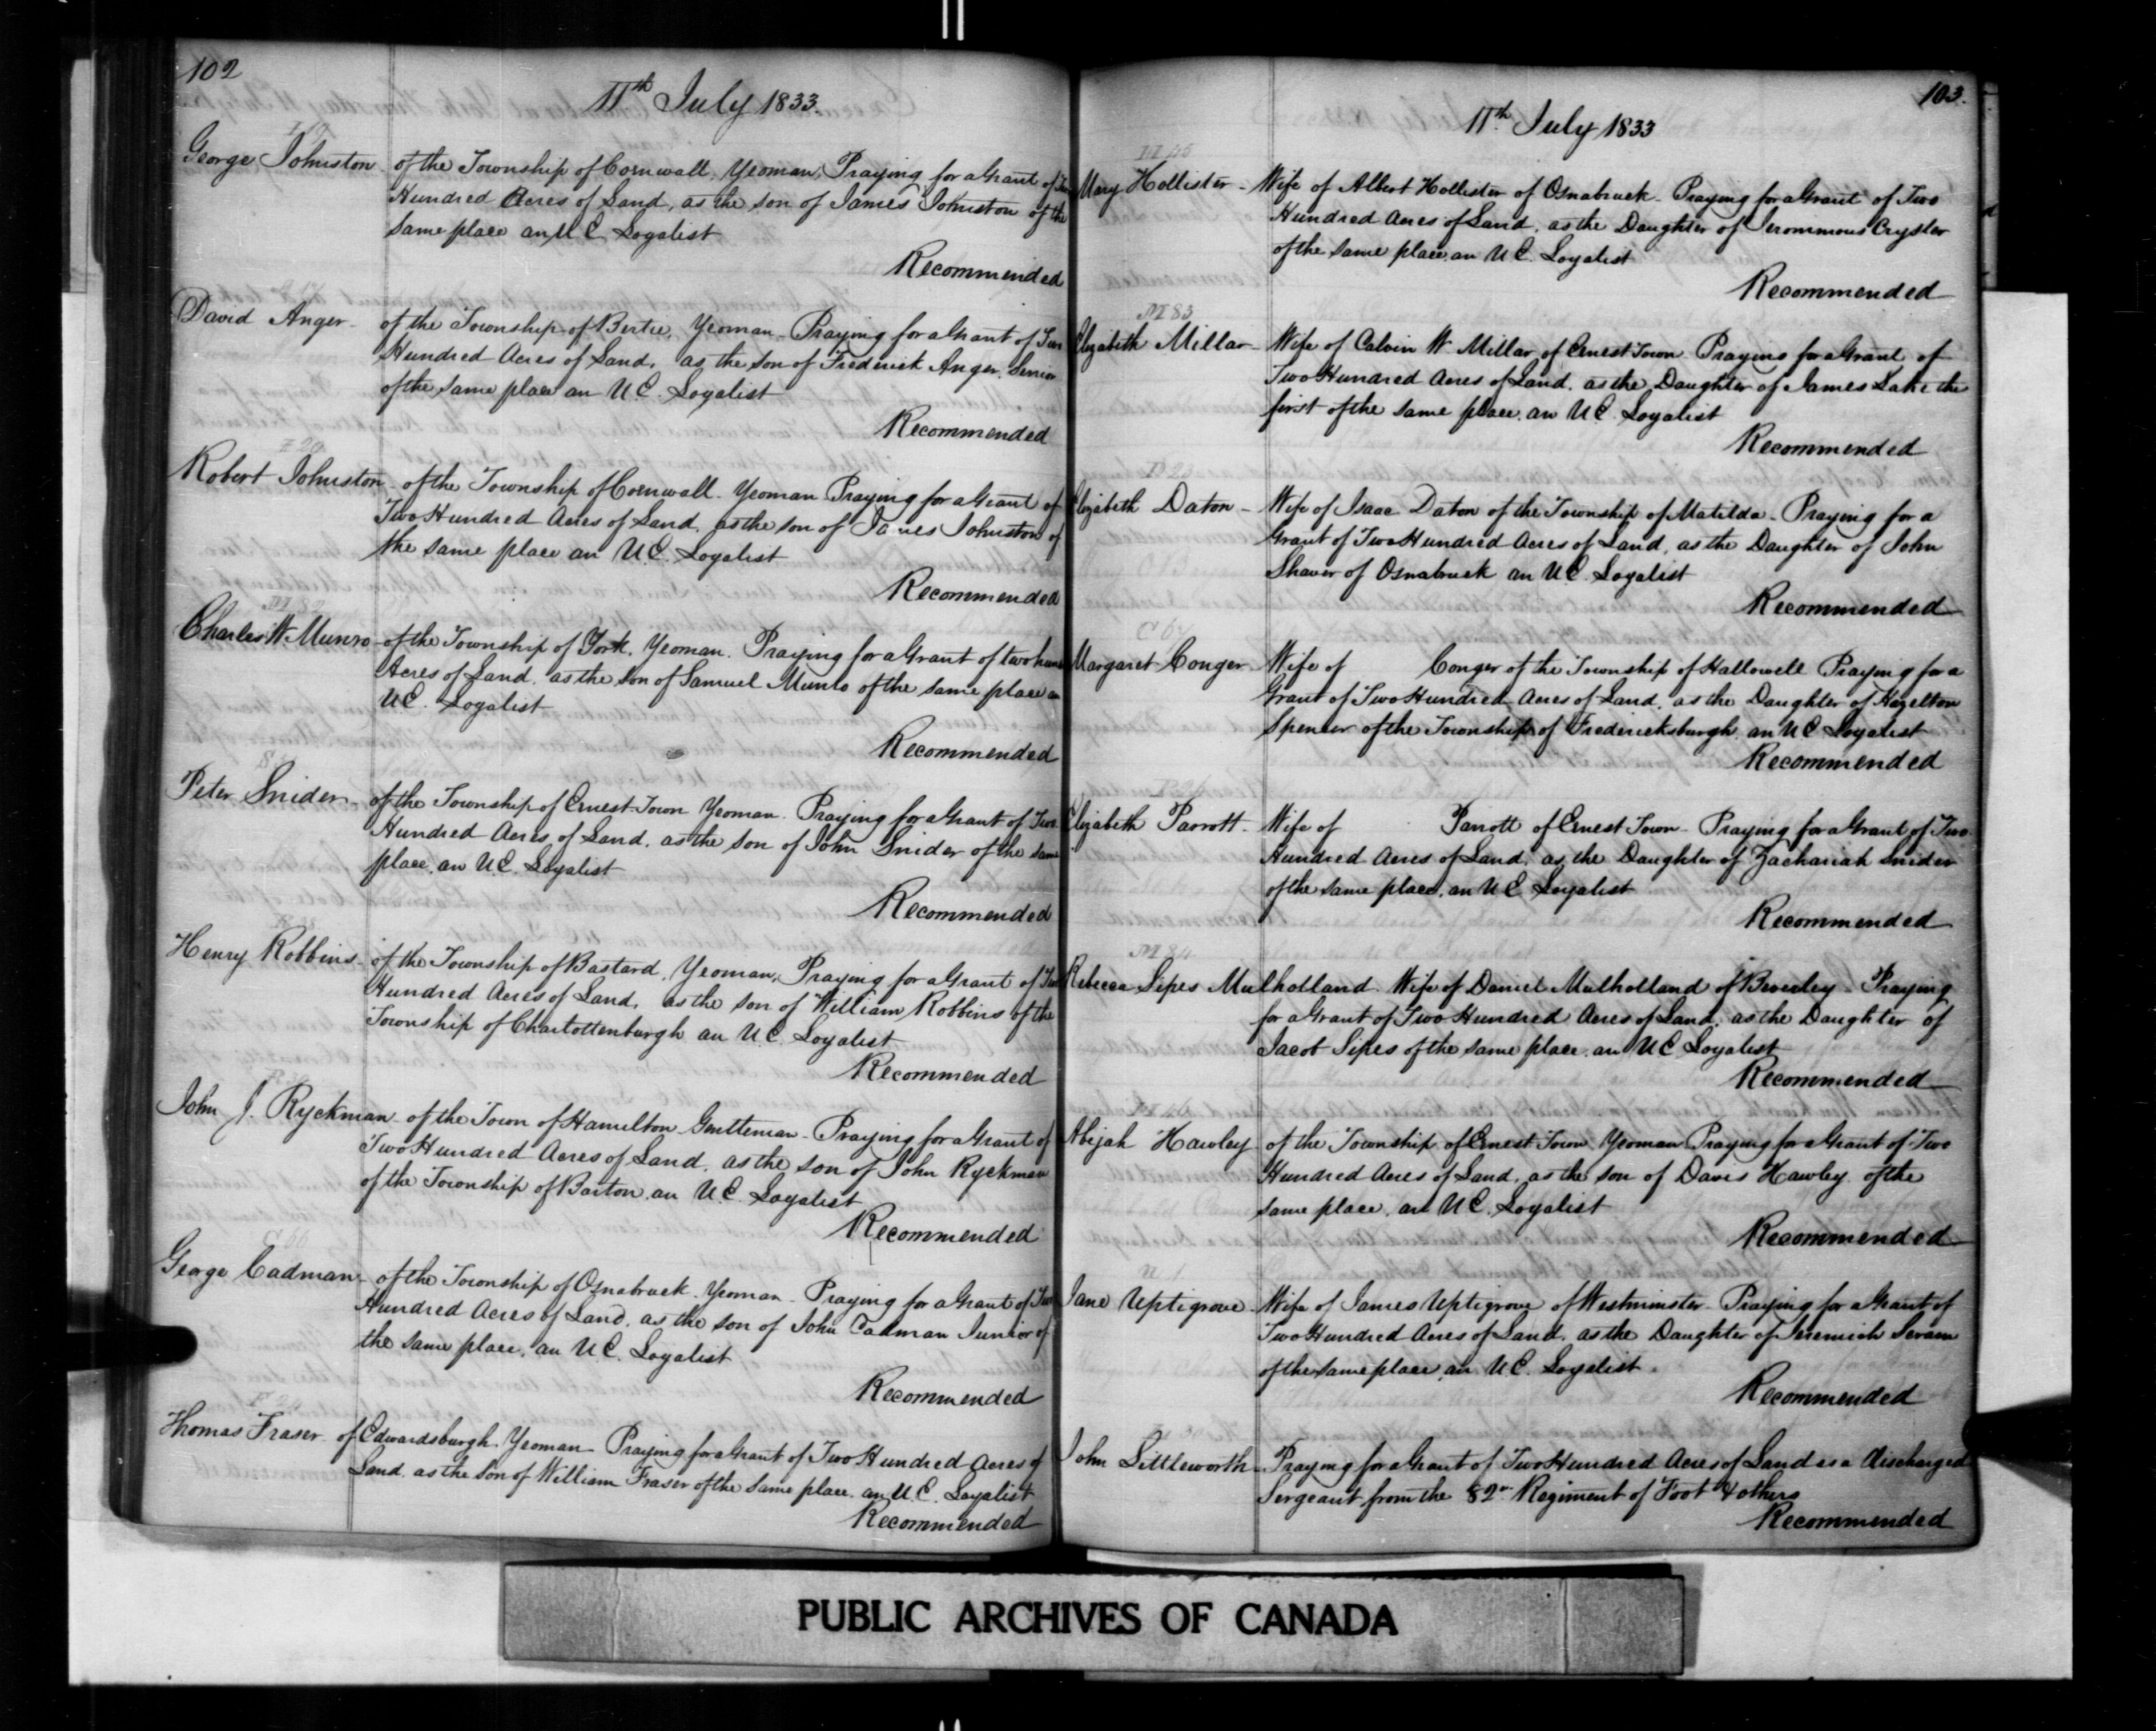 102
11th July 1833.
George Johnston - of the Township of Cornwall, Yeoman, Praying for a Grant of Two
Hundred Acres of Land, as the son of James Johnston of the
same place an U.E. Loyalist
Recommended
David Anger - of the Township of Bertie, Yeoman - Praying for a Grant of Two
Hundred Acres of Land, as the son of Frederick Anger, Senior
of the same place an U.E. Loyalist
Recommended
Robert Johnston - of the Township of Cornwall - Yeoman Praying for a Grant of
Two Hundred Acres of Land, as the son of James Johnston of
the same place an U.E. Loyalist
Recommended
M 82
Charles W. Munro - of the Township of York, Yeoman. Praying for a Grant of two
Acres of Land, as the son of Samuel Munro of the same place an
U.E. Loyalist
Recommended
Peter Snider - of the Township of Ernest Town Yeoman - Praying for a Grant of Two
Hundred Acres of Land, as the son of John Snider of the same
place, an U.E. Loyalist
Recommended
Henry Robbins - of the Township of Bastard, Yeoman, Praying for a Grant of Two
Hundred Acres of Land, as the son of William Robbins of the
Township of Charlottenburgh an U.E. Loyalist
Recommended
John J. Ryckman - of the Town of Hamilton - Gentleman - Praying for a Grant of
Two Hundred Acres of Land, as the son of John Ryckman
of the Township of Barton, an U.E. Loyalist
Recommended
C 66
George Cadman - of the Township of Osnabruck - Yeoman - Praying for a Grant of Two
Hundred Acres of Land, as the son of John Cadman Junior of
the same place, an U.E. Loyalist
Recommended
Thomas Fraser - of Edwardsburgh, Yeoman - Praying for a Grant of Two Hundred Acres of
Land, as the son of William Fraser of the same place, an U.E. Loyalist
Recommended
103.
11th July 1833
Mary Hollister - Wife of Albert Hollister of Osnabruck - Praying for a Grant of Two
Hundred Acres of Land, as the Daughter of Jerommous Crysler
of the same place, an U.E. Loyalist
Recommended
M 83
Elizabeth Millar - Wife of Calvin W. Millar of Ernest Town Praying for a Grant of
Two Hundred Acres of Land, as the Daughter of James Lake the
first of the same place, an U.E. Loyalist
Recommended
Elizabeth Daton - Wife of Isaac Daton of the Township of Matilda - Praying for a
Grant of Two Hundred Acres of Land, as the Daughter of John
Shaver of Osnabruck an U.E. Loyalist
Recommended
C 67
Margaret Conger - Wife of Conger of the Township of Hallowell Praying for a
Grant of Two Hundred Acres of Land, as the Daughter of Hazelton
Spencer of the Township of Fredericksburgh, an U.E. Loyalist
Recommended
Elizabeth Parrott - Wife of Parrott of Ernest Town - Praying for a Grant of Two
Hundred Acres of Land, as the Daughter of Zachariah Snider
of the same place, an U.E. Loyalist
Recommended
M 84
Rebecca Sipes Mulholland - Wife of Daniel Mulholland of Beverley - Praying
for a Grant of Two Hundred Acres of Land, as the Daughter of
Jacob Sipes of the same place, an U.E. Loyalist
Recommended
Abijah Hawley - of the Township of Ernest Town Yeoman Praying for a Grant of Two
Hundred Acres of Land, as the son of Davis Hawley of the
same place, an U.E. Loyalist
Recommended
U 1
Jane Uptigrove - Wife of James Uptigrove of Westminster - Praying for a Grant of
Two Hundred Acres of Land, as the Daughter of Jeremiah
of the same place, an U.E. Loyalist.
Recommended
John Littleworth - Praying for a Grant of Two Hundred Acres of Land as a discharged
Sergeant from the 82nd Regiment of Foot & others
Recommended
PUBLIC ARCHIVES OF CANADA